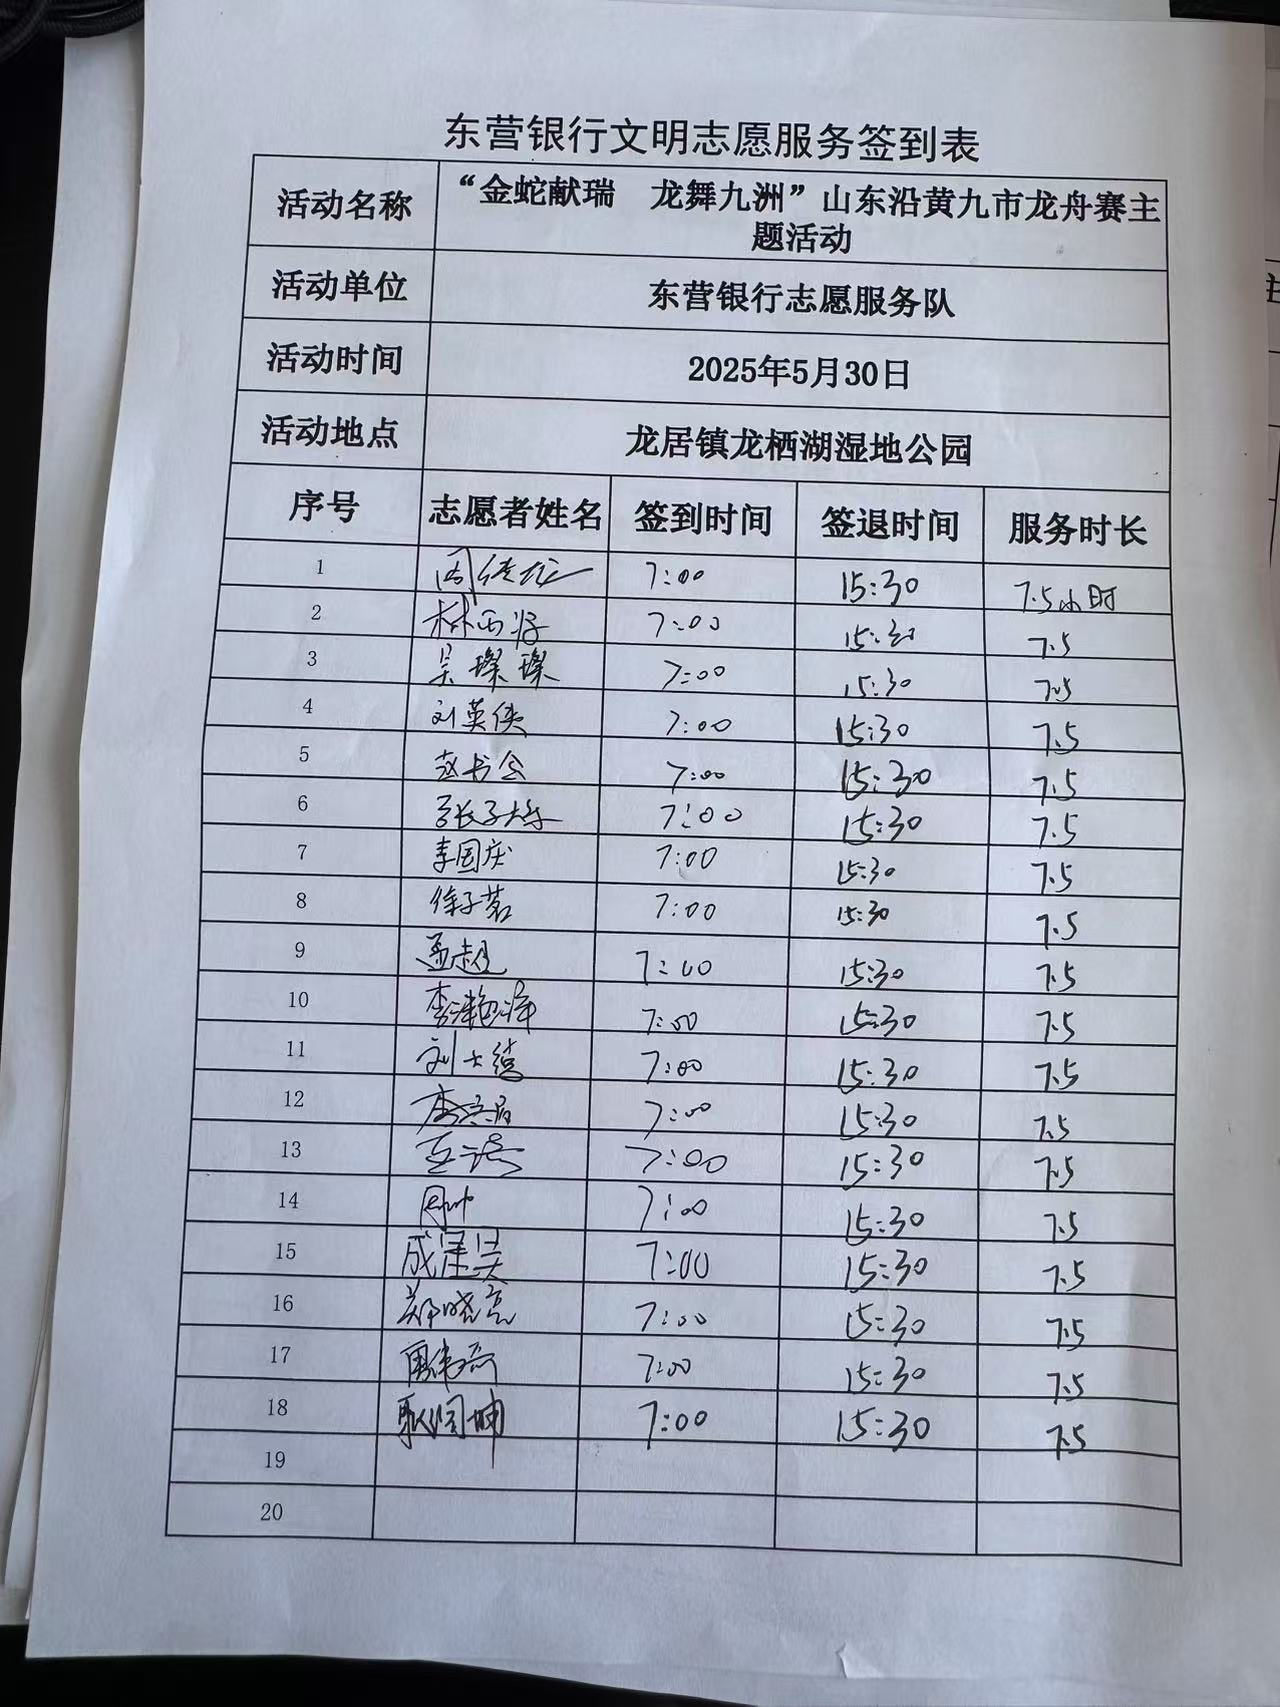 东营银行文明志愿服务签到表
活动名称 “金蛇献瑞 龙舞九洲”山东沿黄九市龙舟赛主
题活动
活动单位 东营银行志愿服务队
活动时间 2025年5月30日
活动地点 龙居镇龙栖湖湿地公园
序号 志愿者姓名 签到时间 签退时间 服务时长
1 7:00 15:30 7.5小时
2 7:00 15:30 7.5
3 吴璨璨 7:00 15:30 7.5
4 刘英侠 7:00 15:30 7.5
5 7:00 15:30 7.5
6 7:00 15:30 7.5
7 李国庆 7:00 15:30 7.5
8 徐子茗 7:00 15:30 7.5
9 孟超 7:00 15:30 7.5
10 7:00 15:30 7.5
11 7:00 15:30 7.5
12 7:00 15:30 7.5
13 7:00 15:30 7.5
14 7:00 15:30 7.5
15 7:00 15:30 7.5
16 郑晓亮 7:00 15:30 7.5
17 7:00 15:30 7.5
18 耿润坤 7:00 15:30 7.5
19
20